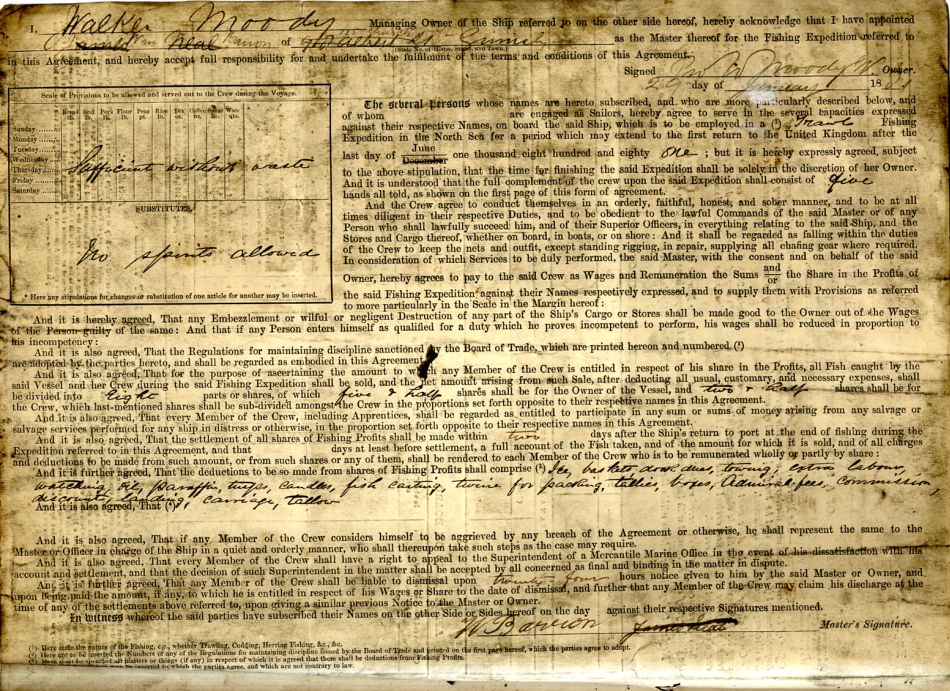 I, Walker Moody Managing Owner of the Ship referred to on the other side hereof, hereby acknowledge that I have appointed
Neal Barron of as the Master thereof for the Fishing Expedition referred to
(State No. of House, Street, and Town.)
in this Agreement, and hereby accept full responsibility for and undertake the fulfilment of the terms and conditions of this Agreement.
Signed Moody Owner.
29 day of 18
Scale of Provisions to be allowed and served out to the Crew during the Voyage.
Sunday
Monday
Tuesday
Wednesday
Thursday
Friday
Saturday
Sufficient without waste
SUBSTITUTES.
No spirits allowed
* Here any stipulations for changes or substitution of one article for another may be inserted.
The several Persons whose names are hereto subscribed, and who are more particularly described below, and
of whom are engaged as Sailors, hereby agree to serve in the several capacities expressed
against their respective Names, on board the said Ship, which is to be employed in a (¹) Trawl Fishing
Expedition in the North Sea for a period which may extend to the first return to the United Kingdom after the
last day of June December one thousand eight hundred and eighty one; but it is hereby expressly agreed, subject
to the above stipulation, that the time for finishing the said Expedition shall be solely in the discretion of her Owner.
And it is understood that the full complement of the crew upon the said Expedition shall consist of five
hands all told, as shown on the first page of this form of agreement.
And the Crew agree to conduct themselves in an orderly, faithful, honest, and sober manner, and to be at all
times diligent in their respective Duties, and to be obedient to the lawful Commands of the said Master or of any
Person who shall lawfully succeed him, and of their Superior Officers, in everything relating to the said Ship, and the
Stores and Cargo thereof, whether on board, in boats, or on shore: And it shall be regarded as falling within the duties
of the Crew to keep the nets and outfit, except standing rigging, in repair, supplying all chafing gear where required.
In consideration of which Services to be duly performed, the said Master, with the consent and on behalf of the said
Owner, hereby agrees to pay to the said Crew as Wages and Remuneration the Sums and/or the Share in the Profits of
the said Fishing Expedition against their Names respectively expressed, and to supply them with Provisions as referred
to more particularly in the Scale in the Margin hereof:
And it is hereby agreed, That any Embezzlement or wilful or negligent Destruction of any part of the Ship's Cargo or Stores shall be made good to the Owner out of the Wages
of the Person guilty of the same: And that if any Person enters himself as qualified for a duty which he proves incompetent to perform, his wages shall be reduced in proportion to
his incompetency:
And it is also agreed, That the Regulations for maintaining discipline sanctioned by the Board of Trade, which are printed hereon and numbered (²)
are adopted by the parties hereto, and shall be regarded as embodied in this Agreement.
And it is also agreed, That for the purpose of ascertaining the amount to which any Member of the Crew is entitled in respect of his share in the Profits, all Fish caught by the
said Vessel and her Crew during the said Fishing Expedition shall be sold, and the net amount arising from such Sale, after deducting all usual, customary, and necessary expenses, shall
be divided into Eight parts or shares, of which five & half shares shall be for the Owner of the Vessel, and two & half shares shall be for
the Crew, which last-mentioned shares shall be sub-divided amongst the Crew in the proportions set forth opposite to their respective names in this Agreement.
And it is also agreed, That every Member of the Crew, including Apprentices, shall be regarded as entitled to participate in any sum or sums of money arising from any salvage or
salvage services performed for any ship in distress or otherwise, in the proportion set forth opposite to their respective names in this Agreement.
And it is also agreed, That the settlement of all shares of Fishing Profits shall be made within two days after the Ship's return to port at the end of fishing during the
Expedition referred to in this Agreement, and that days at least before settlement, a full account of the Fish taken, and of the amount for which it is sold, and of all charges
and deductions to be made from such amount, or from such shares or any of them, shall be rendered to each Member of the Crew who is to be remunerated wholly or partly by share:
And it is further agreed, That the deductions to be so made from shares of Fishing Profits shall comprise (³) Ice, baskets dock dues, towing, extra labour,
watching, oil, paraffin, turps, candles, fish casting, twine for packing, tallies, boxes, Admiral fees, commission,
discount, landing, carriage, tallow
And it is also agreed, That (⁴),
And it is also agreed, That if any Member of the Crew considers himself to be aggrieved by any breach of the Agreement or otherwise, he shall represent the same to the
Master or Officer in charge of the Ship in a quiet and orderly manner, who shall thereupon take such steps as the case may require.
And it is also agreed, That every Member of the Crew shall have a right to appeal to the Superintendent of a Mercantile Marine Office in the event of his dissatisfaction with his
account and settlement, and that the decision of such Superintendent in the matter shall be accepted by all concerned as final and binding in the matter in dispute.
And it is further agreed, That any Member of the Crew shall be liable to dismissal upon twenty four hours notice given to him by the said Master or Owner, and
upon being paid the amount, if any, to which he is entitled in respect of his Wages or Share to the date of dismissal, and further that any Member of the Crew may claim his discharge at the
time of any of the settlements above referred to, upon giving a similar previous Notice to the Master or Owner.
In witness whereof the said parties have subscribed their Names on the other Side or Sides hereof on the day against their respective Signatures mentioned.
W Barron James Neal Master's Signature.
(¹). Here state the nature of the Fishing, e.g., whether Trawling, Codding, Herring Fishing, &c., &c.
(²). Here are to be inserted the Numbers of any of the Regulations for maintaining discipline issued by the Board of Trade and printed on the first page hereof, which the parties agree to adopt.
(³). Here must be specified all matters or things (if any) in respect of which it is agreed that there shall be deductions from Fishing Profits.
be inserted to which the parties agree, and which are not contrary to law.